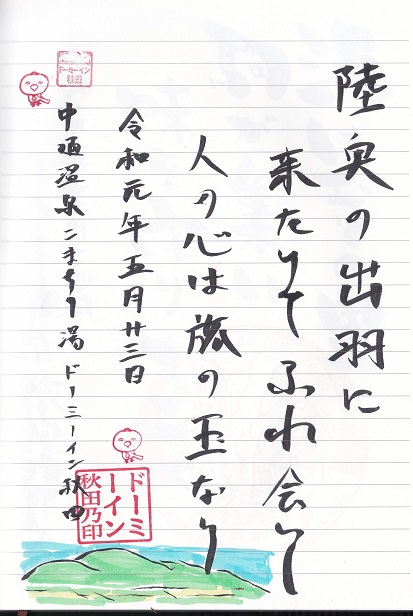 陸奥の出羽に
来たりてふれ会い
人の心は旅の玉なり
令和元年五月廿三日
中通温泉こまちの湯 ドーミーイン秋田
ドーミーイン秋田
ドーミーイン秋田乃印